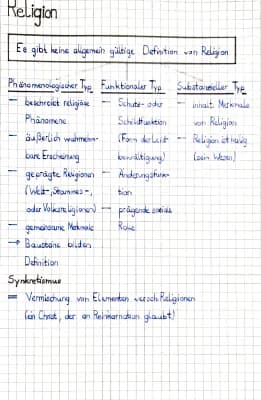 Religion
Es gibt keine allgemein gültige Definition von Religion
Phänomenologischer Typ
– beschreibt religiöse
Phänomene
– äußerlich wahrnehm-
bare Erscheinung
– geprägte Religionen
(Welt-, Stammes-,
oder Volksreligionen)
– gemeinsame Merkmale
→ Bausteine bilden
Definition
Funktionaler Typ
– Schutz- oder
Schildfunktion
(Form der Leid-
bewältigung)
– Änderungsfunk-
tion
– prägende soziale
Rolle
Substanzieller Typ
– inhalt. Merkmale
von Religion
– Religion ist heilig
(sein Wesen)
Synkretismus
= Vermischung von Elementen versch. Religionen
(ein Christ, der an Reinkarnation glaubt)